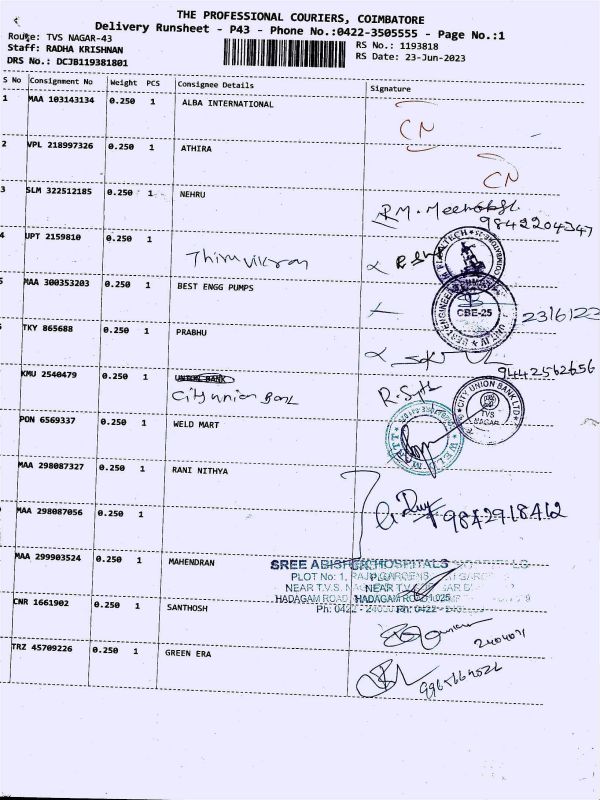 THE PROFESSIONAL COURIERS, COIMBATORE
Delivery Runsheet - P43 - Phone No.:0422-3505555 - Page No.:1
Route: TVS NAGAR-43
Staff: RADHA KRISHNAN
DRS No.: DCJB119381801
RS No.: 1193818
RS Date: 23-Jun-2023
S No Consignment No Weight PCS Consignee Details Signature
1 MAA 103143134 0.250 1 ALBA INTERNATIONAL
CN
2 VPL 218997326 0.250 1 ATHIRA
CN
3 SLM 322512185 0.250 1 NEHRU
9842204347
4 UPT 2159810 0.250 1
Thiruvikram
MAA 300353203 0.250 1 BEST ENGG PUMPS
CBE-25
2316123
TKY 865688 0.250 1 PRABHU
9442562656
KMU 2540479 0.250 1 UNION BANK
City union Bank
CITY UNION BANK LTD
TVS
NAGAR
PON 6569337 0.250 1 WELD MART
WELD MART
MAA 298087327 0.250 1 RANI NITHYA
MAA 298087056 0.250 1
9842918462
MAA 299903524 0.250 1 MAHENDRAN
SREE ABISHEK HOSPITALS
PLOT No: 1,
NEAR T.V.S.
HADAGAM ROAD,
Ph: 0422 -
CNR 1661902 0.250 1 SANTHOSH
TRZ 45709226 0.250 1 GREEN ERA